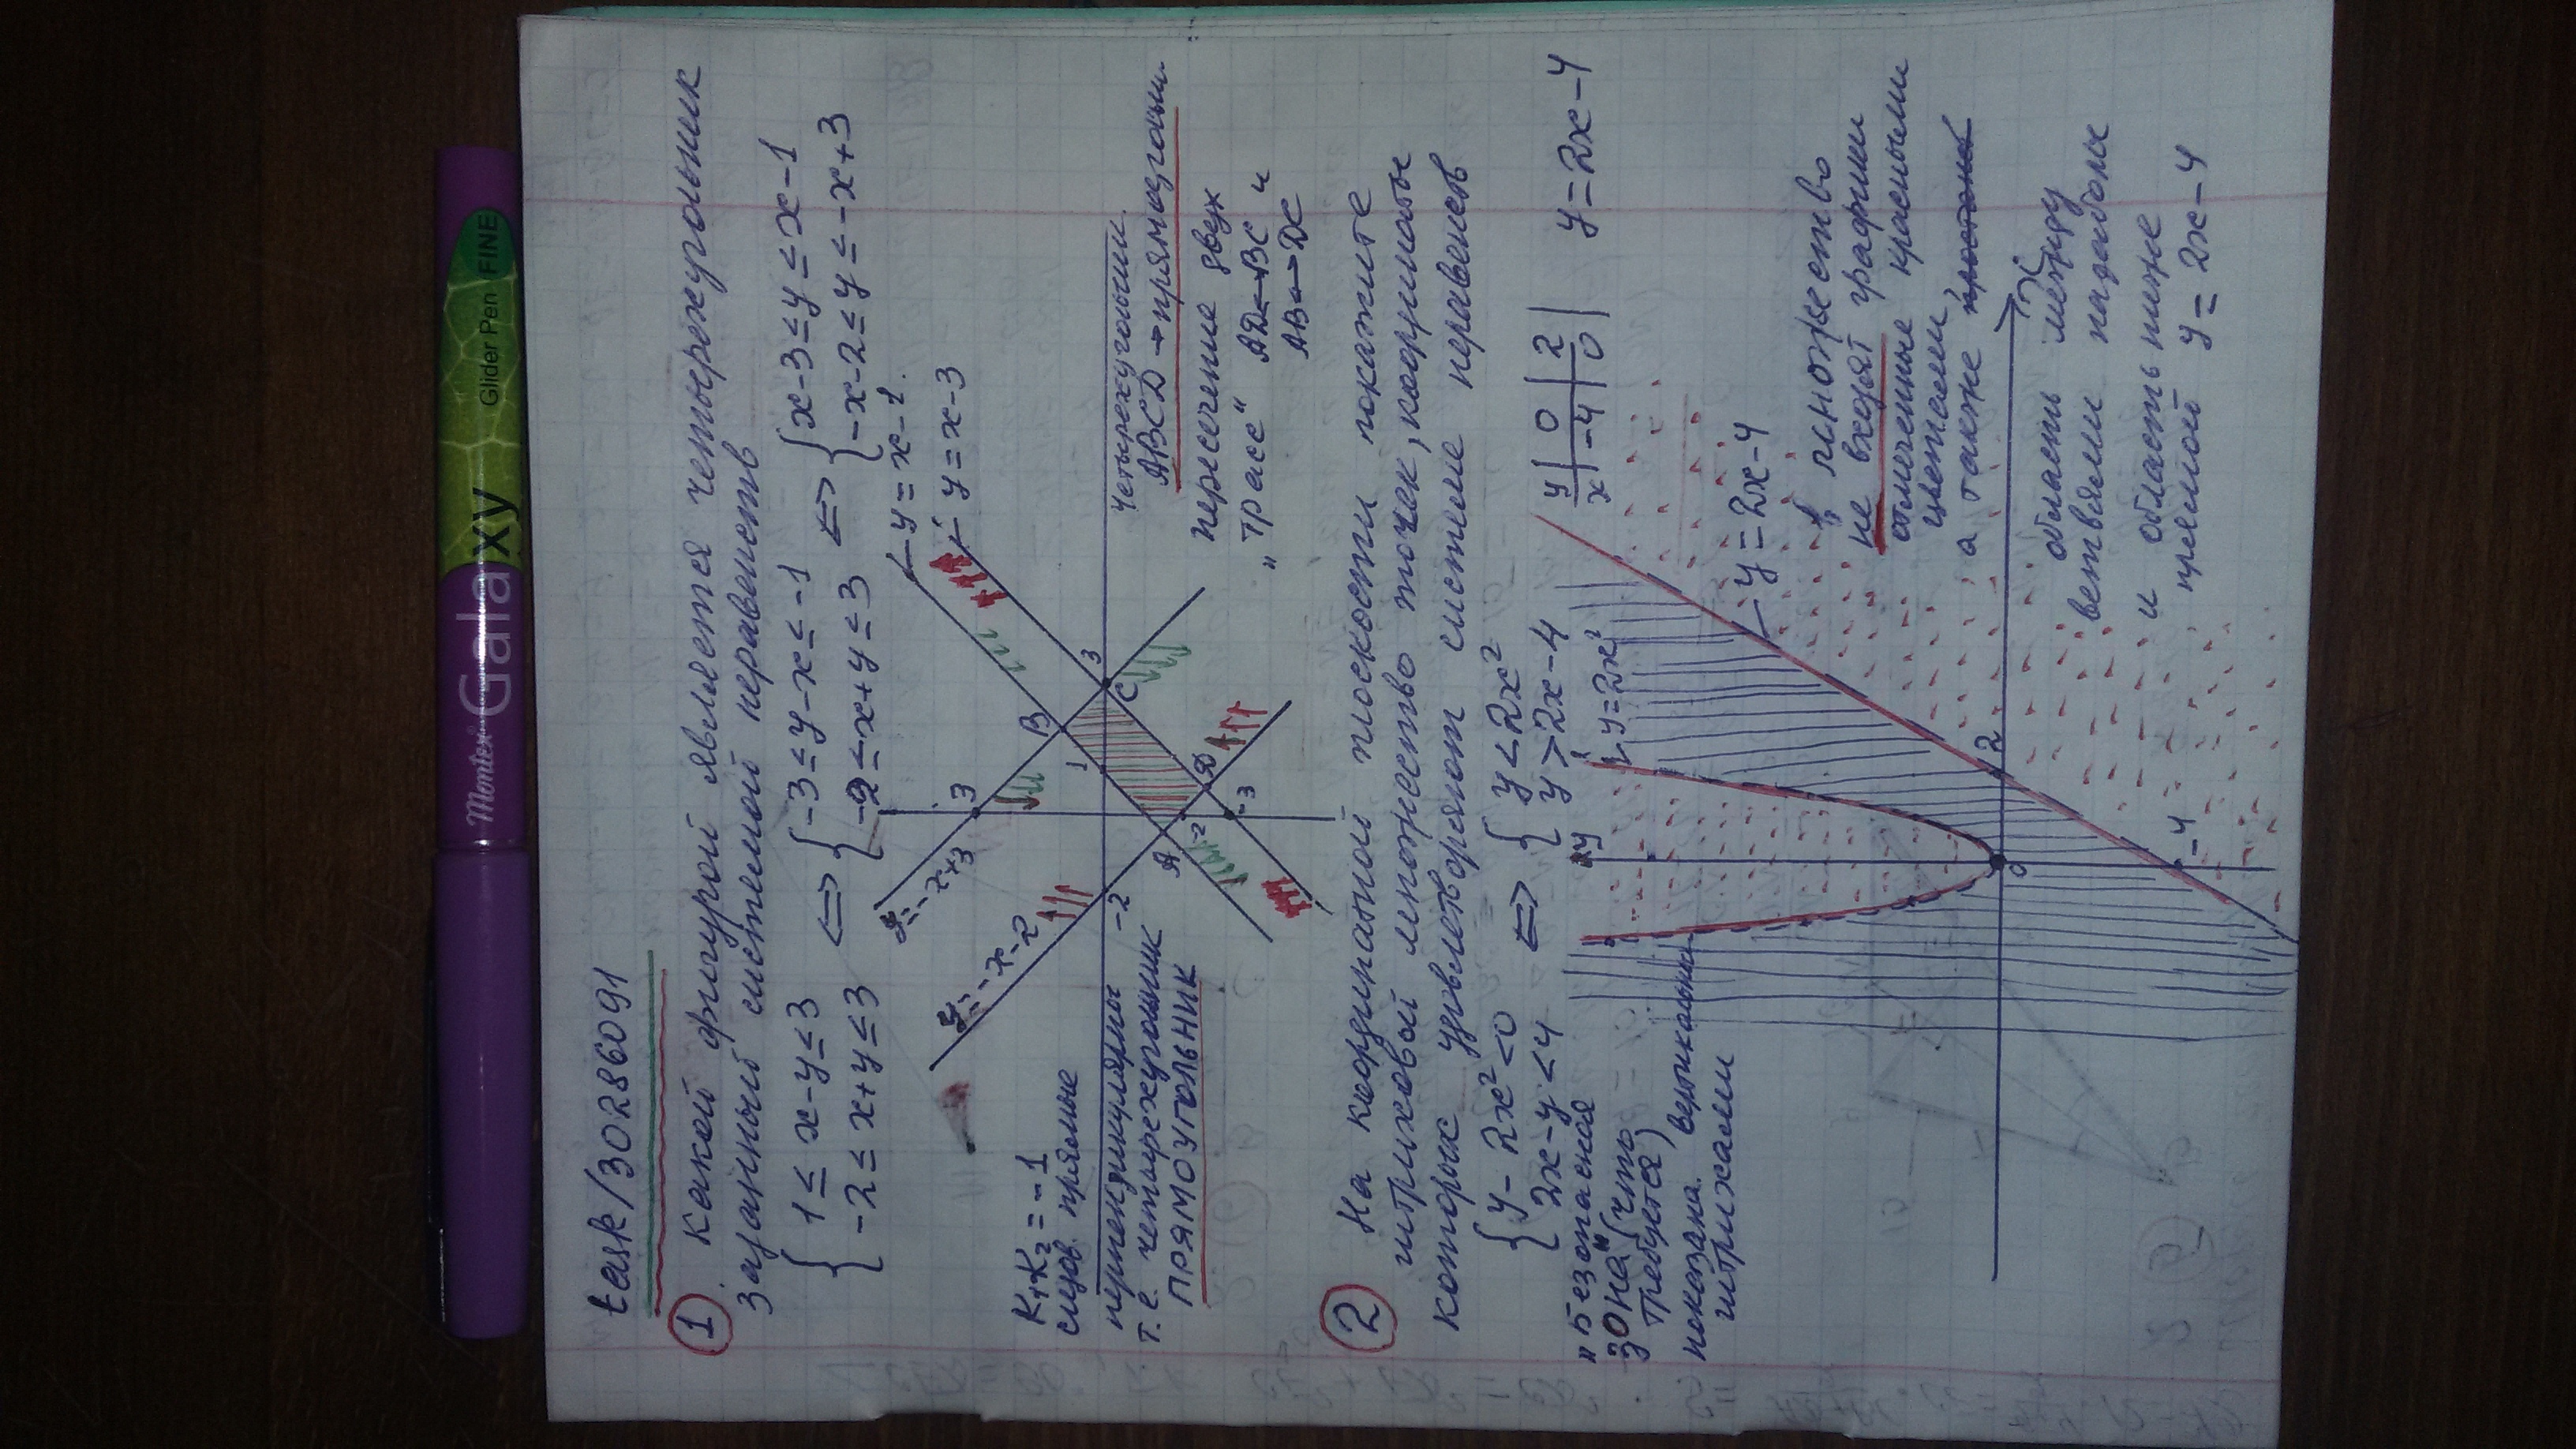 Montex Galaxy Glider Pen FINE
task/30286091
① Какой фигурой является четырехугольник
заданный системой неравенств
{ 1 ≤ x - y ≤ 3 ⇔ { -3 ≤ y - x ≤ -1 ⇔ { x - 3 ≤ y ≤ x - 1
-2 ≤ x + y ≤ 3 -2 ≤ x + y ≤ 3 -x - 2 ≤ y ≤ -x + 3
y = x - 1
y = x - 3
y = -x + 3
y = -x - 2
3
B
1
3
C
-2
A
-2
D
-3
K₁*K₂ = -1
следов. прямые
перпендикулярны
т.е. четырехугольник
ПРЯМОУГОЛЬНИК
Четырехугольник
ABCD → прямоугольн.
пересечение двух
"трасс" AD↔BC и
AB↔DC
② На координатной плоскости покажите
штриховкой множество точек, координаты
которых удовлетворяют системе неравенств
{ y - 2x² < 0 ⇔ { y < 2x²
2x - y < 4 y > 2x - 4
y | 0 | 2 |
x | -4 | 0 |
y = 2x - 4
"Безопасная
зона" (что
требуется)
показана вертикальными
штрихами
y
y = 2x²
y = 2x - 4
x
0
2
-4
В множество
не входят графики
отмеченные красными
цветами,
а также
область между
ветвями параболы
и область ниже
прямой y = 2x - 4